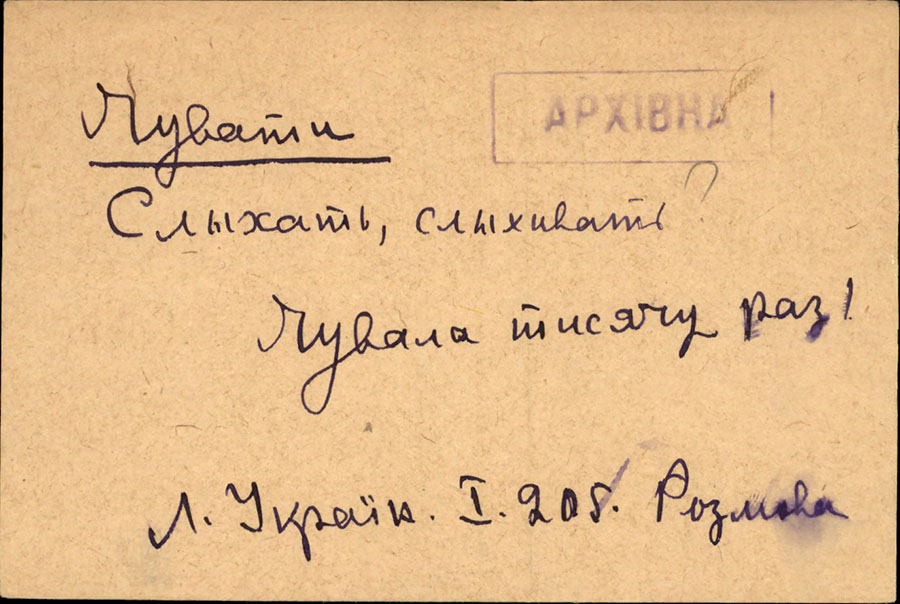 АРХІВНА
Чувати
Слыхать, слыхивать?
Чувала тисячу раз!
Л. Україн. I. 205. Розмова